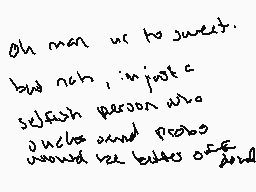 Oh man ur to sweet.
but nah, im just a
selfish person who
sucks and probs
would be better off dead